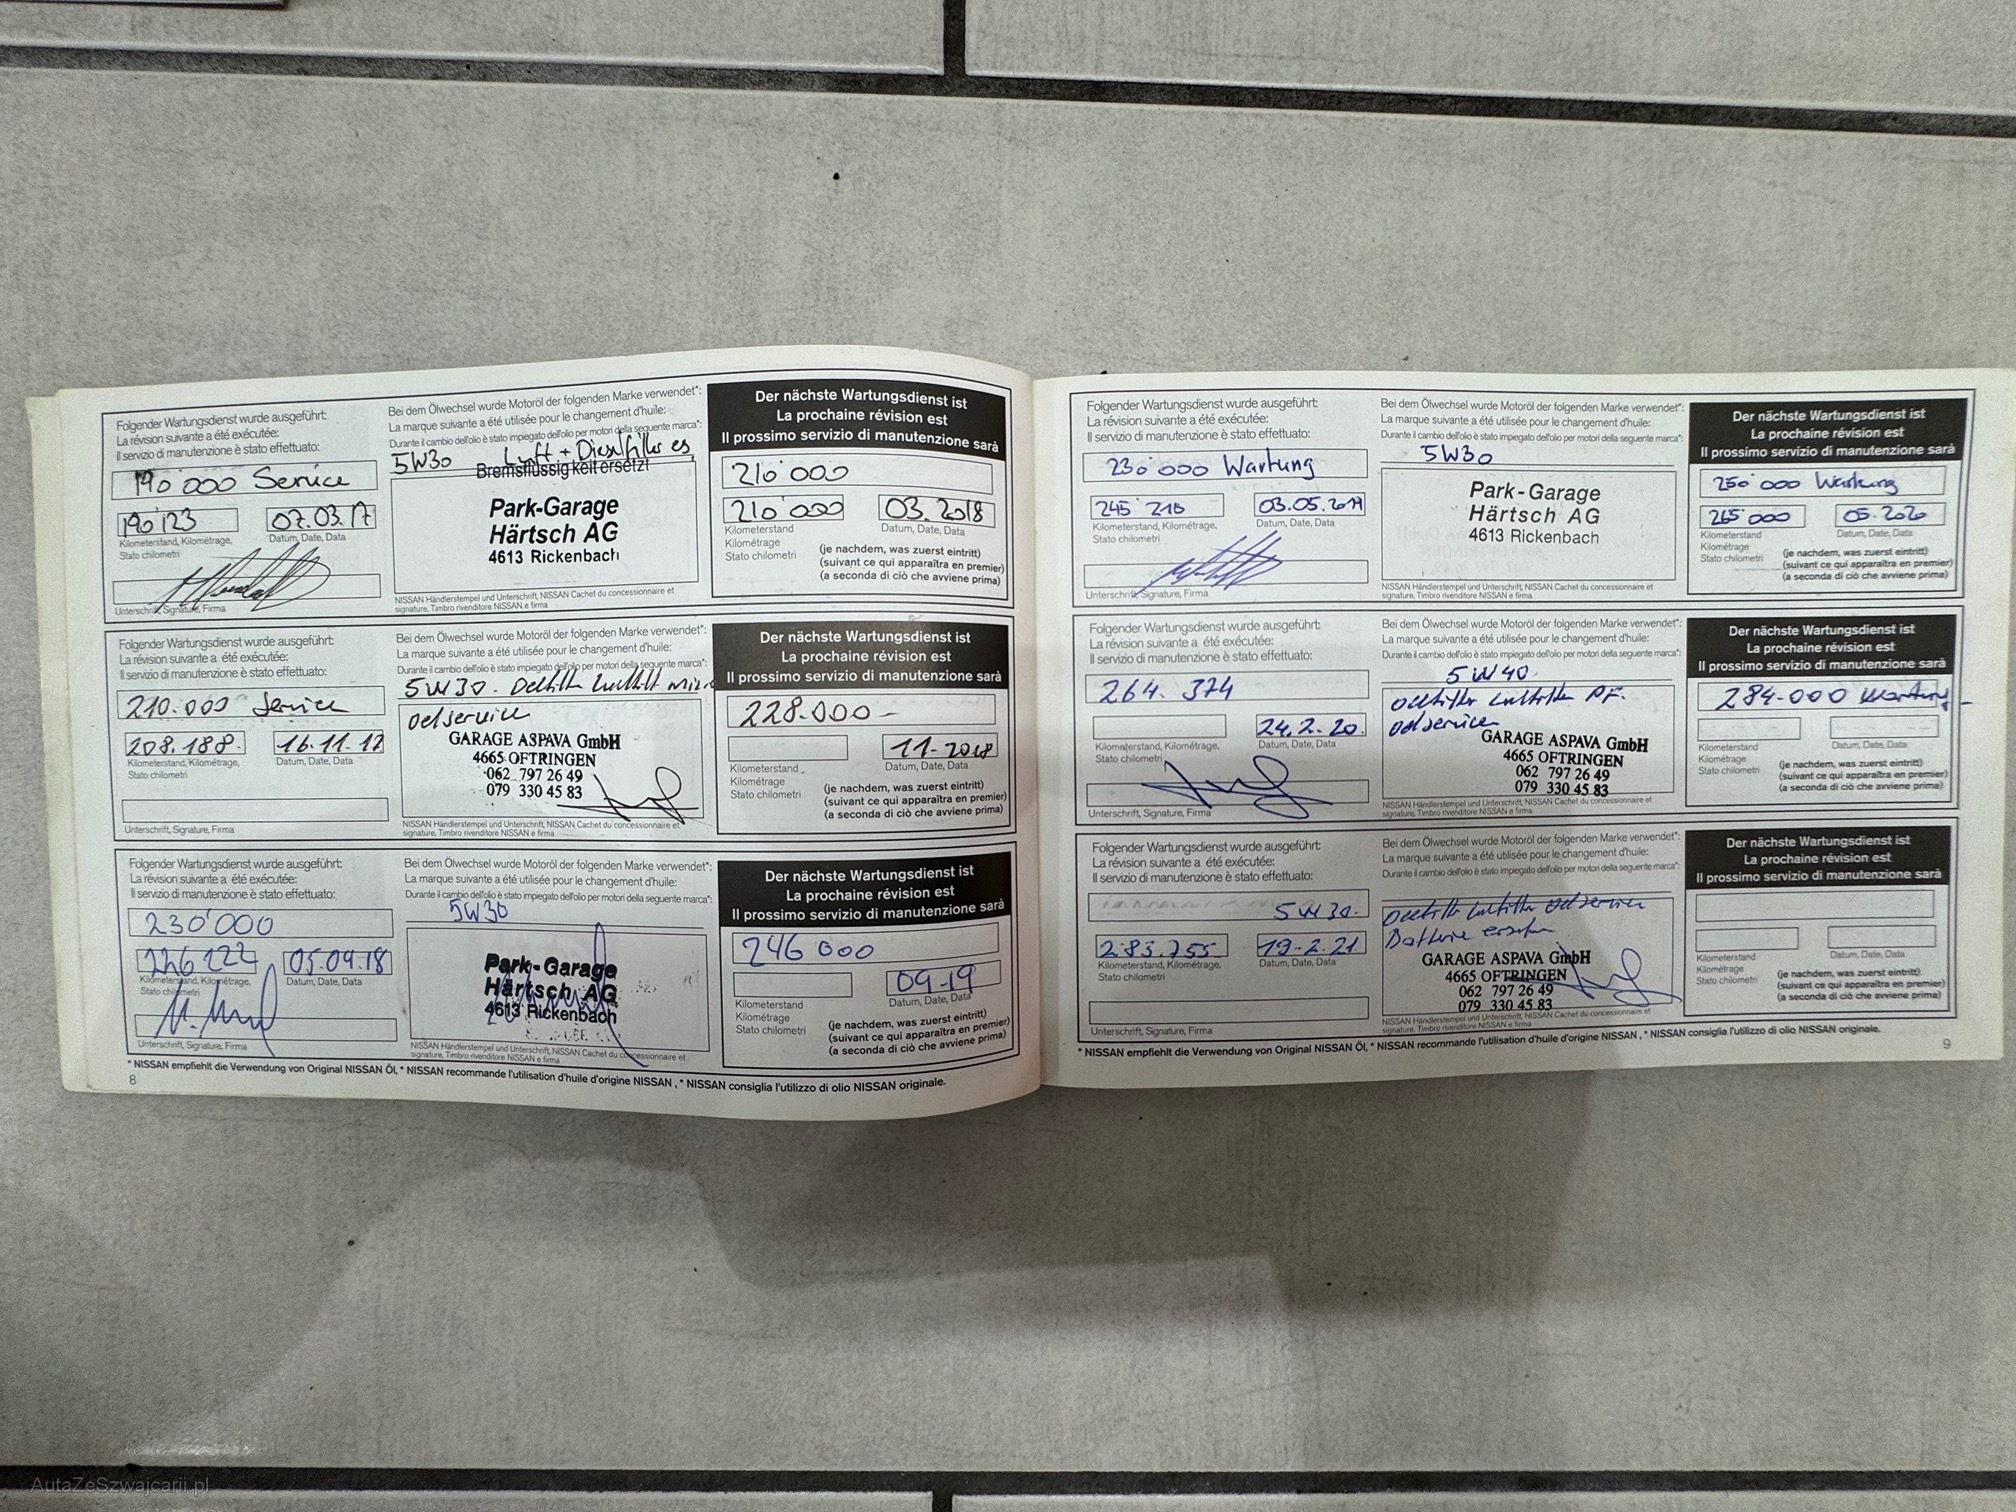 Folgender Wartungsdienst wurde ausgeführt:
La révision suivante a été exécutée:
Il servizio di manutenzione è stato effettuato:
190'000 Service
190'123
07.03.17
Kilometerstand, Kilométrage,
Stato chilometri
Datum, Date, Data
Unterschrift, Signature, Firma
Bei dem Ölwechsel wurde Motoröl der folgenden Marke verwendet*:
La marque suivante a été utilisée pour le changement d'huile:
Durante il cambio dell'olio è stato impiegato dell'olio per motori della seguente marca*:
5W30 Luft + Dieselfilter es,
Bremsflüssigkeit ersetzt
Park-Garage
Härtsch AG
4613 Rickenbach
NISSAN Händlerstempel und Unterschrift, NISSAN Cachet du concessionnaire et
signature, Timbro rivenditore NISSAN e firma
Der nächste Wartungsdienst ist
La prochaine révision est
Il prossimo servizio di manutenzione sarà
210'000
210'000
03.2018
Kilometerstand
Kilométrage
Stato chilometri
Datum, Date, Data
(je nachdem, was zuerst eintritt)
(suivant ce qui apparaîtra en premier)
(a seconda di ciò che avviene prima)
Folgender Wartungsdienst wurde ausgeführt:
La révision suivante a été exécutée:
Il servizio di manutenzione è stato effettuato:
210.000 Service
208.188.
16.11.17
Kilometerstand, Kilométrage,
Stato chilometri
Datum, Date, Data
Unterschrift, Signature, Firma
Bei dem Ölwechsel wurde Motoröl der folgenden Marke verwendet*:
La marque suivante a été utilisée pour le changement d'huile:
Durante il cambio dell'olio è stato impiegato dell'olio per motori della seguente marca*:
5W30. Oelfilter Luftfilt
oelservice
GARAGE ASPAVA GmbH
4665 OFTRINGEN
062 797 26 49
079 330 45 83
NISSAN Händlerstempel und Unterschrift, NISSAN Cachet du concessionnaire et
signature, Timbro rivenditore NISSAN e firma
Der nächste Wartungsdienst ist
La prochaine révision est
Il prossimo servizio di manutenzione sarà
228.000 -
11-2018
Kilometerstand
Kilométrage
Stato chilometri
Datum, Date, Data
(je nachdem, was zuerst eintritt)
(suivant ce qui apparaîtra en premier)
(a seconda di ciò che avviene prima)
Folgender Wartungsdienst wurde ausgeführt:
La révision suivante a été exécutée:
Il servizio di manutenzione è stato effettuato:
230'000
226 122
05.09.18
Kilometerstand, Kilométrage,
Stato chilometri
Datum, Date, Data
Unterschrift, Signature, Firma
Bei dem Ölwechsel wurde Motoröl der folgenden Marke verwendet*:
La marque suivante a été utilisée pour le changement d'huile:
Durante il cambio dell'olio è stato impiegato dell'olio per motori della seguente marca*:
5W30
Park-Garage
Härtsch AG
4613 Rickenbach
NISSAN Händlerstempel und Unterschrift, NISSAN Cachet du concessionnaire et
signature, Timbro rivenditore NISSAN e firma
Der nächste Wartungsdienst ist
La prochaine révision est
Il prossimo servizio di manutenzione sarà
246 000
09-19
Kilometerstand
Kilométrage
Stato chilometri
Datum, Date, Data
(je nachdem, was zuerst eintritt)
(suivant ce qui apparaîtra en premier)
(a seconda di ciò che avviene prima)
* NISSAN empfiehlt die Verwendung von Original NISSAN Öl, * NISSAN recommande l'utilisation d'huile d'origine NISSAN , * NISSAN consiglia l'utilizzo di olio NISSAN originale.
8
Folgender Wartungsdienst wurde ausgeführt:
La révision suivante a été exécutée:
Il servizio di manutenzione è stato effettuato:
230'000 Wartung
245'210
03.05.2019
Kilometerstand, Kilométrage,
Stato chilometri
Datum, Date, Data
Unterschrift, Signature, Firma
Bei dem Ölwechsel wurde Motoröl der folgenden Marke verwendet*:
La marque suivante a été utilisée pour le changement d'huile:
Durante il cambio dell'olio è stato impiegato dell'olio per motori della seguente marca*:
5W30
Park-Garage
Härtsch AG
4613 Rickenbach
NISSAN Händlerstempel und Unterschrift, NISSAN Cachet du concessionnaire et
signature, Timbro rivenditore NISSAN e firma
Der nächste Wartungsdienst ist
La prochaine révision est
Il prossimo servizio di manutenzione sarà
250'000 Wartung
265'000
05.2020
Kilometerstand
Kilométrage
Stato chilometri
Datum, Date, Data
(je nachdem, was zuerst eintritt)
(suivant ce qui apparaîtra en premier)
(a seconda di ciò che avviene prima)
Folgender Wartungsdienst wurde ausgeführt:
La révision suivante a été exécutée:
Il servizio di manutenzione è stato effettuato:
264.374
24.2.20.
Kilometerstand, Kilométrage,
Stato chilometri
Datum, Date, Data
Unterschrift, Signature, Firma
Bei dem Ölwechsel wurde Motoröl der folgenden Marke verwendet*:
La marque suivante a été utilisée pour le changement d'huile:
Durante il cambio dell'olio è stato impiegato dell'olio per motori della seguente marca*:
5W40
oelfilter Luftfilter PF.
oelservice
GARAGE ASPAVA GmbH
4665 OFTRINGEN
062 797 26 49
079 330 45 83
NISSAN Händlerstempel und Unterschrift, NISSAN Cachet du concessionnaire et
signature, Timbro rivenditore NISSAN e firma
Der nächste Wartungsdienst ist
La prochaine révision est
Il prossimo servizio di manutenzione sarà
284.000 Wartung
Kilometerstand
Kilométrage
Stato chilometri
Datum, Date, Data
(je nachdem, was zuerst eintritt)
(suivant ce qui apparaîtra en premier)
(a seconda di ciò che avviene prima)
Folgender Wartungsdienst wurde ausgeführt:
La révision suivante a été exécutée:
Il servizio di manutenzione è stato effettuato:
5W30.
283.755
19-2.21
Kilometerstand, Kilométrage,
Stato chilometri
Datum, Date, Data
Unterschrift, Signature, Firma
Bei dem Ölwechsel wurde Motoröl der folgenden Marke verwendet*:
La marque suivante a été utilisée pour le changement d'huile:
Durante il cambio dell'olio è stato impiegato dell'olio per motori della seguente marca*:
oelfilter Luftfilter oelservice
Batterie ersetzen
GARAGE ASPAVA GmbH
4665 OFTRINGEN
062 797 26 49
079 330 45 83
NISSAN Händlerstempel und Unterschrift, NISSAN Cachet du concessionnaire et
signature, Timbro rivenditore NISSAN e firma
Der nächste Wartungsdienst ist
La prochaine révision est
Il prossimo servizio di manutenzione sarà
Kilometerstand
Kilométrage
Stato chilometri
Datum, Date, Data
(je nachdem, was zuerst eintritt)
(suivant ce qui apparaîtra en premier)
(a seconda di ciò che avviene prima)
* NISSAN empfiehlt die Verwendung von Original NISSAN Öl, * NISSAN recommande l'utilisation d'huile d'origine NISSAN , * NISSAN consiglia l'utilizzo di olio NISSAN originale.
9
AutaZeSzwajcarii.pl